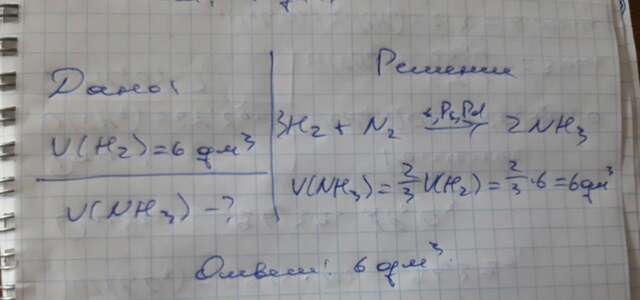 Дано:
V(H₂)=6 дм³
V(NH₃)-?
Решение
3H₂ + N₂ → 2NH₃
V(NH₃)=2/3V(H₂)=2/3·6=6дм³
Ответ: 6 дм³.